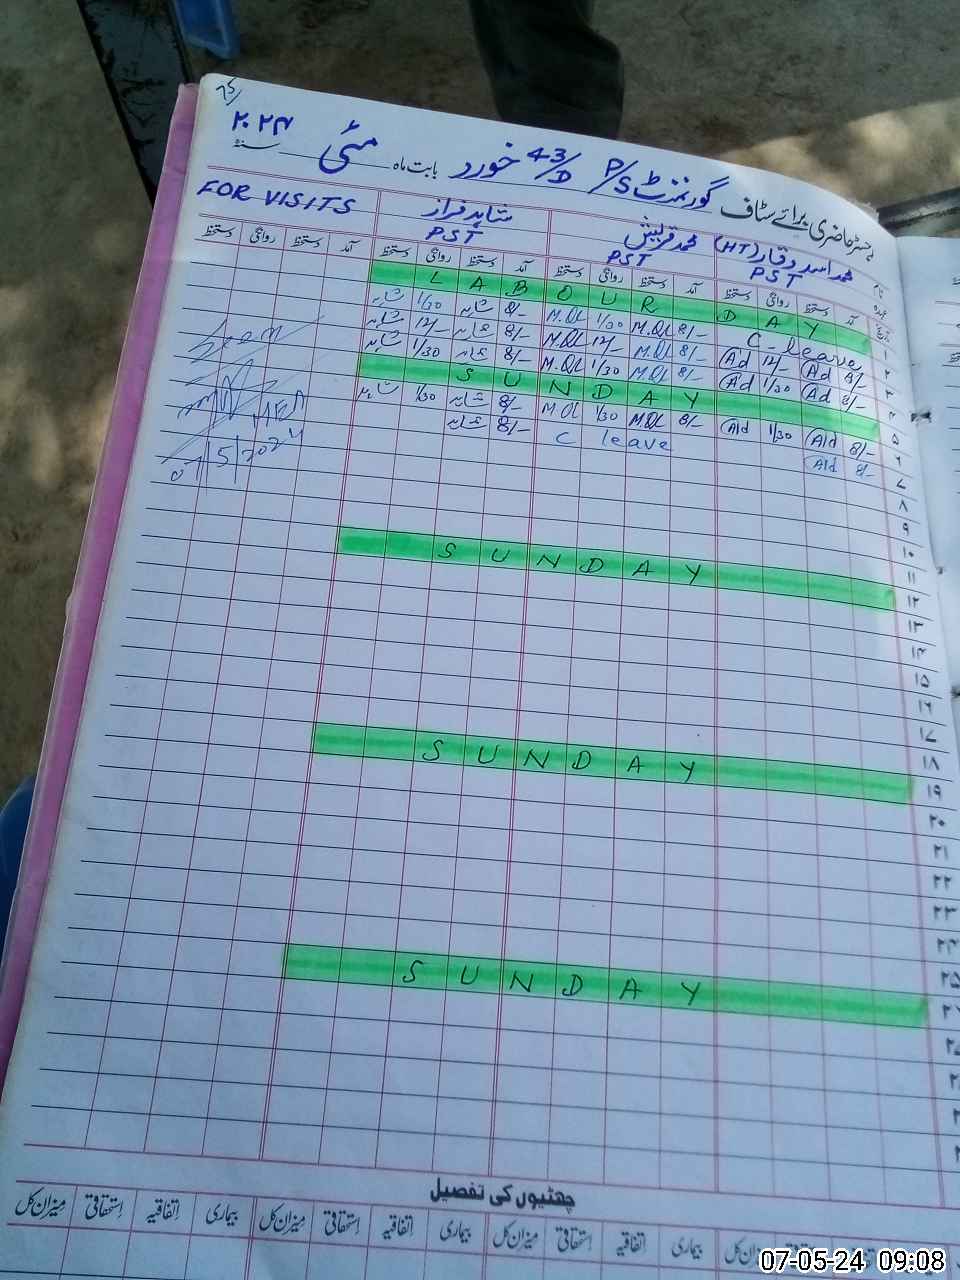 رجسٹر حاضری برائے سٹاف گورنمنٹ P/S 43/D خورد بابت ماہ مئی سنہ ۲۰۲۴
محمد اسد وقار (HT) محمد قریش شاہد فراز FOR VISITS
PST PST PST
آمد دستخط روانگی دستخط آمد دستخط روانگی دستخط آمد دستخط روانگی دستخط آمد دستخط روانگی دستخط
۱ LABOUR DAY
۲ C-leave M.QL 8/- M.QL 1/30 شاہد 8/- شاہد 1/30
۳ 8/- Ad 12/- Ad 8/- M.QL 12/- M.QL 8/- شاہد 12/- شاہد
۴ 8/- Ad 1/30 Ad 8/- M.QL 1/30 M.QL 8/- شاہد 1/30 شاہد
۵ SUNDAY
۶ 8/- Ald 1/30 Ald 8/- M.QL 1/30 M.QL 8/- شاہد 1/30 شاہد
۷ 8/- Ald C leave 8/- شاہد
Seen
MEA
07/5/2024
۸
۹
۱۰
۱۱
۱۲ SUNDAY
۱۳
۱۴
۱۵
۱۶
۱۷
۱۸
۱۹ SUNDAY
۲۰
۲۱
۲۲
۲۳
۲۴
۲۵
SUNDAY
چھٹیوں کی تفصیل
میزان کل بیماری اتفاقیہ استحقاقی میزان کل بیماری اتفاقیہ استحقاقی میزان کل
07-05-24 09:08